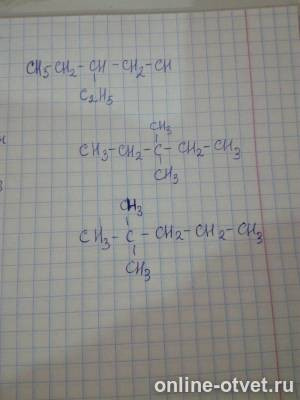 CH3-CH2-CH-CH2-CH
C2H5
CH3
CH3-CH2-C-CH2-CH3
CH3
CH3
CH3-C-CH2-CH2-CH3
CH3
online-otvet.ru